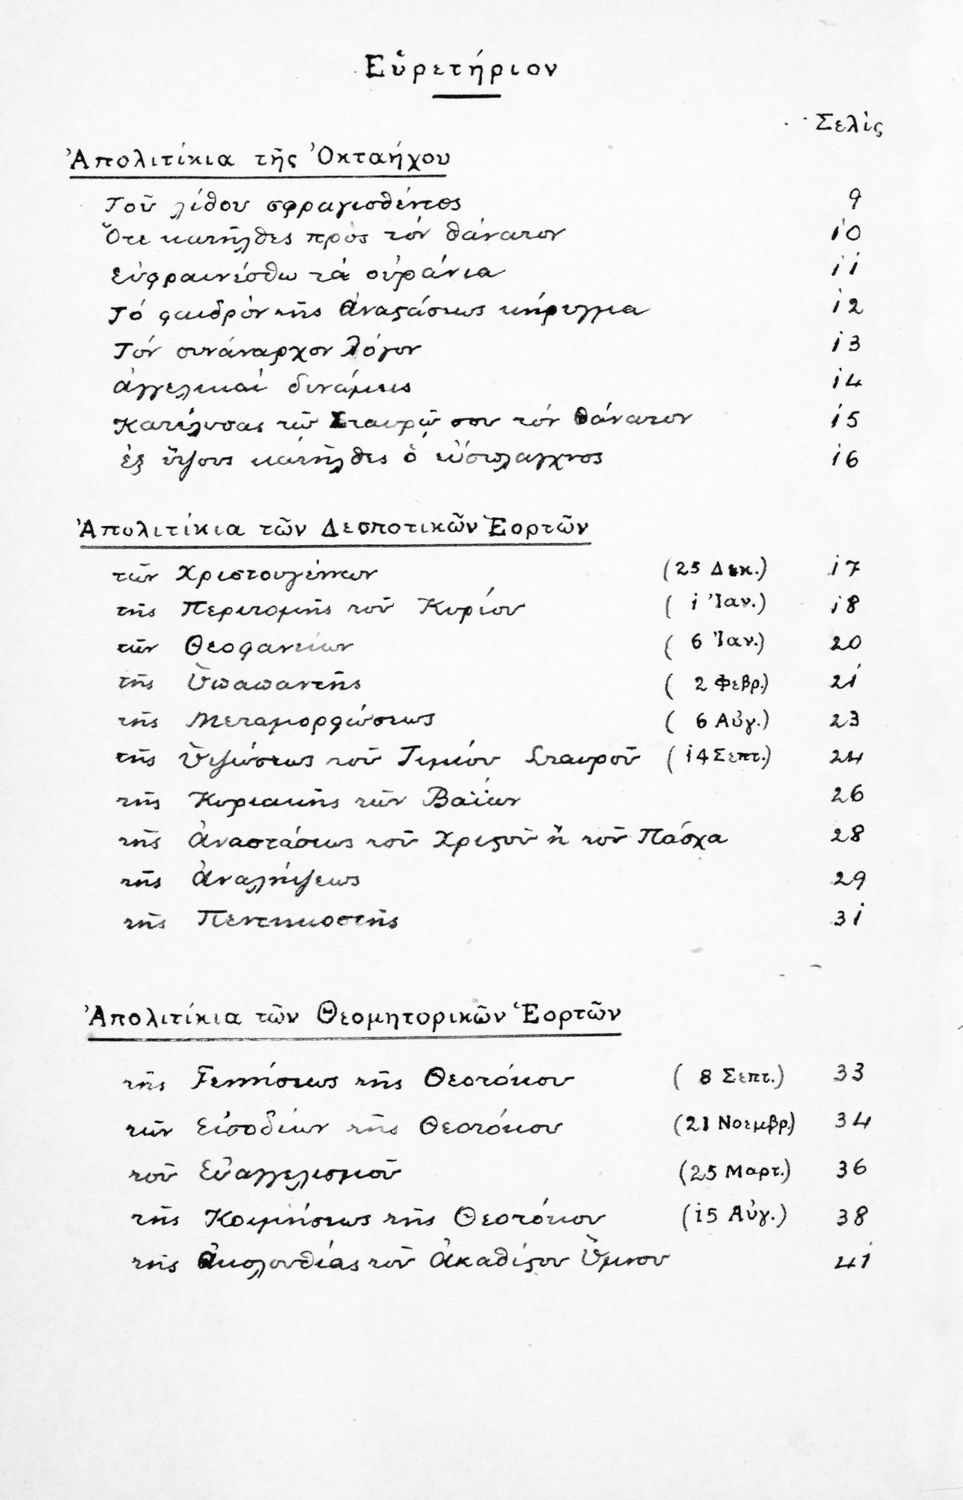 Εὑρετήριον
Σελὶς
Ἀπολιτίκια τῆς Ὀκταήχου
Τοῦ λίθου σφραγισθέντος 9
Ὅτε κατῆλθες πρὸς τόν θάνατον 10
Εὐφραινέσθω τά οὐράνια 11
Τό φαιδρόν τῆς Ἀναςάσεως κήρυγμα 12
Τόν συνάναρχον Λόγον 13
Ἀγγελικαί δυνάμεις 14
Κατέλυσας τῷ Σταυρῷ σου τόν θάνατον 15
ἐξ ὕψους κατῆλθες ὁ εὔσπλαγχνος 16
Ἀπολιτίκια τῶν Δεσποτικῶν Ἑορτῶν
τῶν Χριστουγέννων (25 Δεκ.) 17
τῆς Περιτομῆς τοῦ Κυρίου (1 Ἰαν.) 18
τῶν Θεοφανείων (6 Ἰαν.) 20
τῆς Ὑπαπαντῆς (2 Φεβρ.) 21
τῆς Μεταμορφώσεως (6 Αὐγ.) 23
τῆς Ὑψώσεως τοῦ Τιμίου Σταυροῦ (14 Σεπτ.) 24
τῆς Κυριακῆς τῶν Βαΐων 26
τῆς Ἀναστάσεως τοῦ Χριςοῦ ἤ τοῦ Πάσχα 28
τῆς Ἀναλήψεως 29
τῆς Πεντηκοστῆς 31
Ἀπολιτίκια τῶν Θεομητορικῶν Ἑορτῶν
τῆς Γεννήσεως τῆς Θεοτόκου (8 Σεπτ.) 33
τῶν Εἰσοδίων τῆς Θεοτόκου (21 Νοεμβρ.) 34
τοῦ Εὐαγγελισμοῦ (25 Μαρτ.) 36
τῆς Κοιμήσεως τῆς Θεοτόκου (15 Αὐγ.) 38
τῆς Ἀκολουθίας τοῦ Ἀκαθίςου Ὕμνου 41